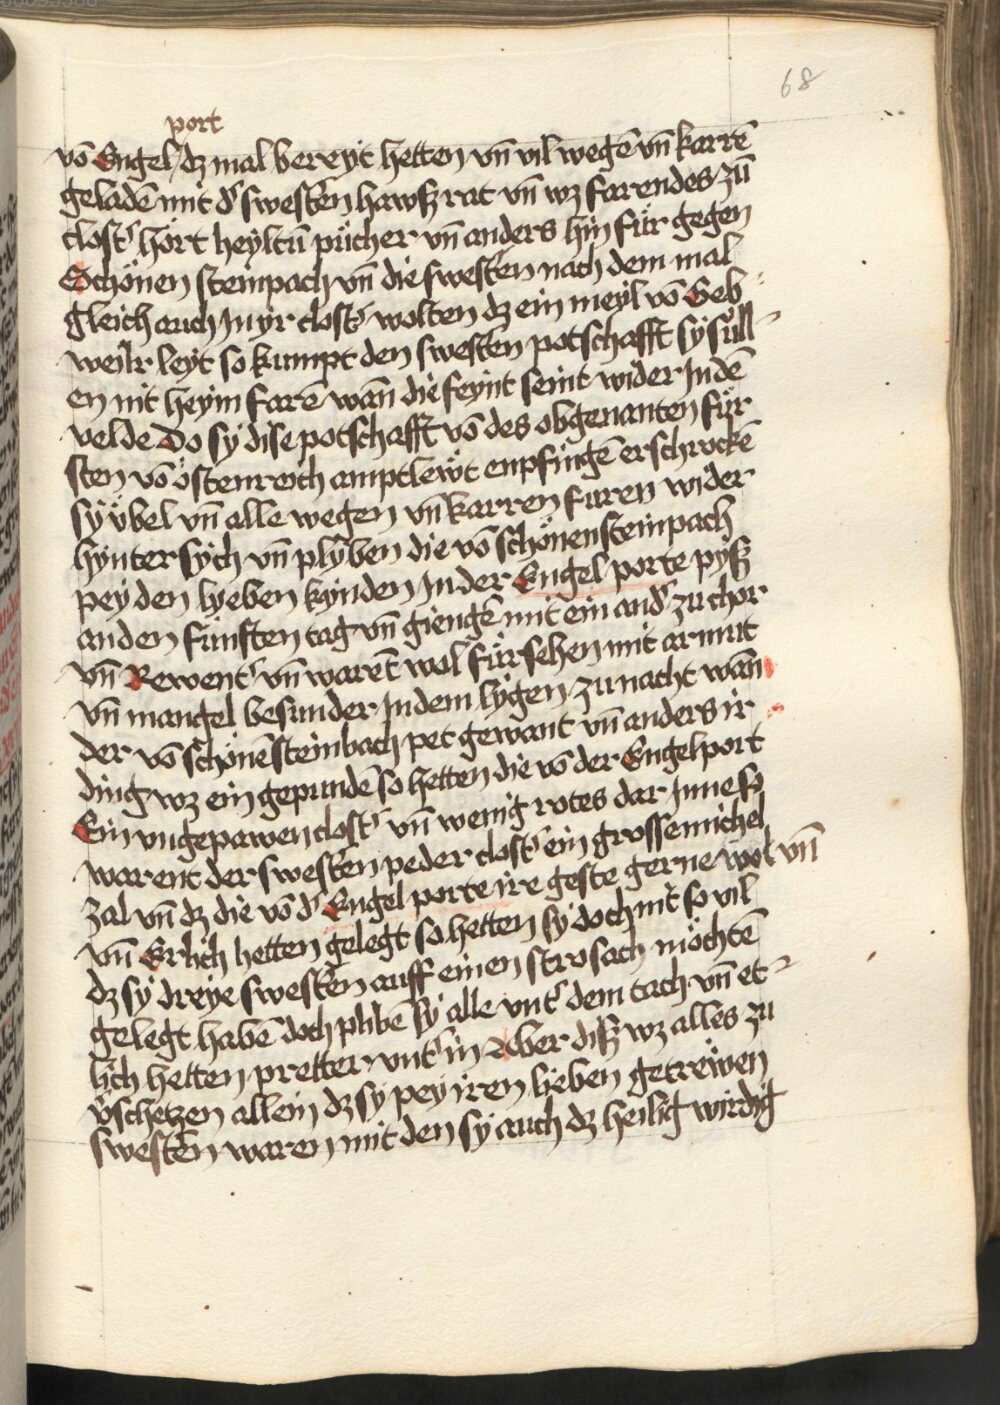 68
port
vō Engel / dz mal bereyt hetten vn̄ vil wegē vn̄ karrē
geladē mit dˢ swestˢen hawsz rat vn̄ wz farendes zū
clostˢ hört heyltū pücher vn̄ anders hin für gegen
Schönen steinpach vn̄ die swestˢen nach dem mal
gleich auch in yr clostˢ wolten dz ein meyl vō Geb
weilr leyt so kumpt den swestˢen potschafft sy süll
en nit heym farē wan̄ die feynt seint wider In dē
velde Do sy dise potschafft vō des obgenanten für
sten vō östenreich amptlewt enpfingē erschrockē
sy übel vn̄ alle wegen vn̄ karren furen wider
hynter sych vn̄ plyben die vō schönensteinpach
pey den lyeben kynden In der Engel porte pysz
an den fünften tag vn̄ giengē mit ein andˢ zu chor
vn̄ Rewentˢ vn̄ warēt wol fürsehen mit armut
vn̄ mangel besunder In dem lygen zu nacht wan̄
der vō schönēsteinbach pet gewant vn̄ anders ir
ding wz ein gepundē so hetten die vō der Engelport
Ein vngepawen clostˢ vn̄ wenig rotes dar Inne so
warent der swestˢen peder clostˢ ein grosse michel
zal vn̄ dz die vō dˢ Engel porte ire geste gerne wol vn̄
vn̄ Erlich hetten gelegt so hetten sy doch nit so vil
dz sy dreye swestˢen auff einen strosach möchtē
gelegt habē doch plibē sy alle vntˢ dem tach vn̄ et
lich hetten pretter vntˢ in Aber disz wz alles zu
vˢschetzen allein dz sy pey iren lieben getrewen
swestˢen waren mit den sy auch dz heilig wirdig